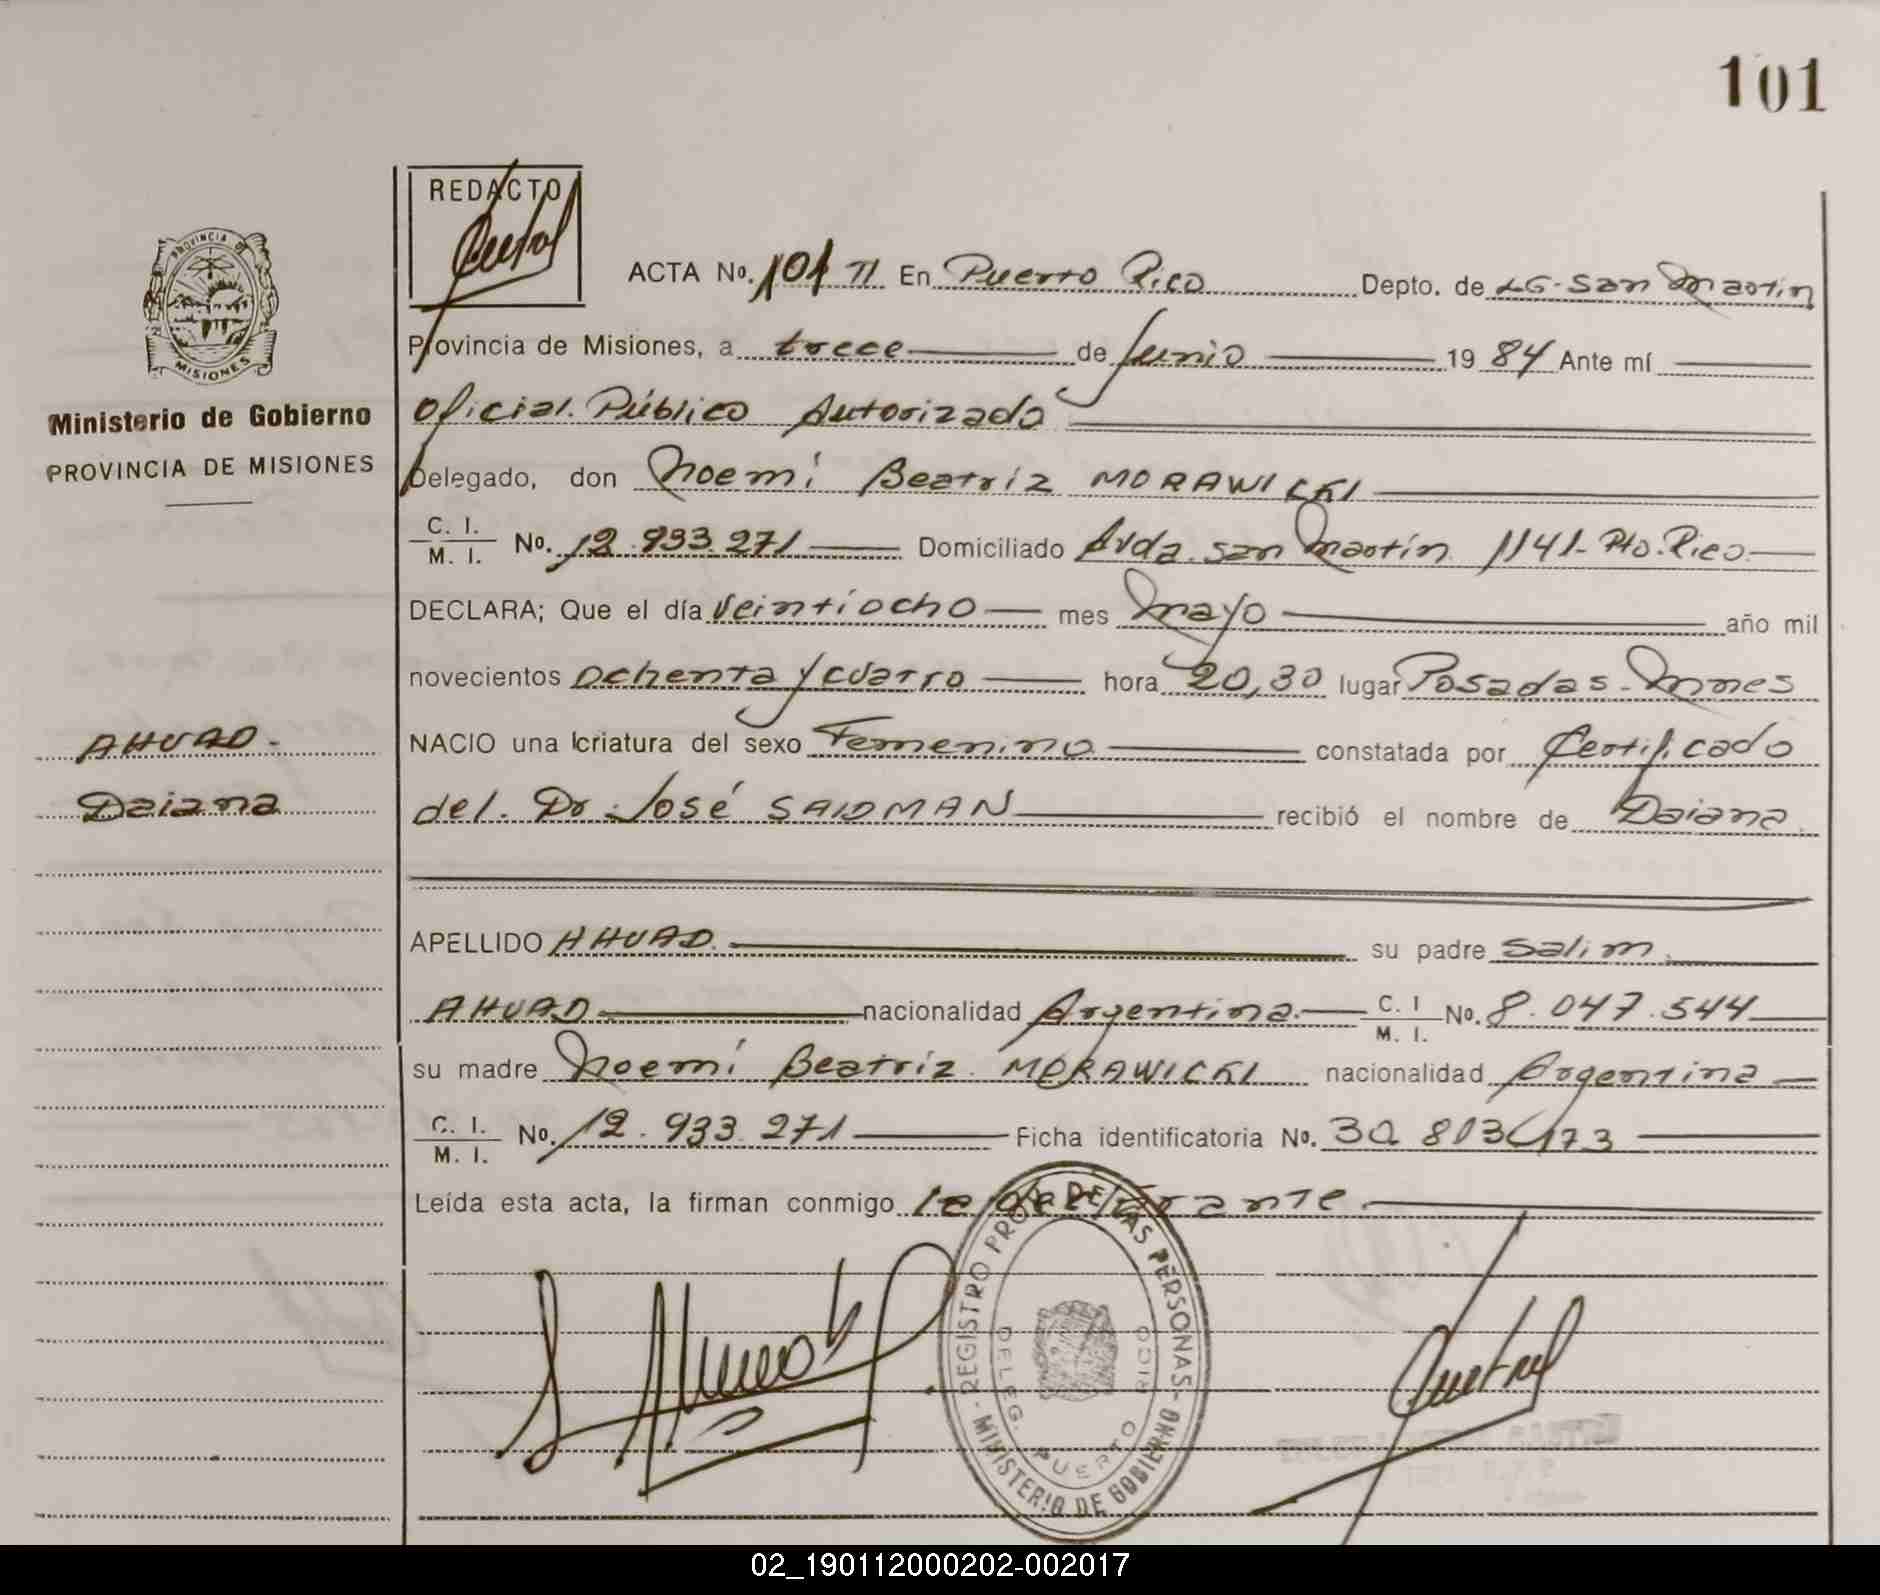 101
REDACTO
ACTA No. 101 TI En Puerto Rico Depto. de LG. San Martin
Provincia de Misiones, a trece de Junio 1984 Ante mí
Oficial Público Autorizado
Delegado, don Noemí Beatríz MORAWICKI
C. I. / M. I. No. 12.933.271 Domiciliado Avda. San Martín 1141- Pto. Rico
DECLARA; Que el día veintiocho mes Mayo año mil
novecientos ochenta y cuatro hora 20,30 lugar Posadas - Mnes
NACIO una criatura del sexo Femenino constatada por Certificado
del. Dr. José SAIDMAN recibió el nombre de Daiana
APELLIDO AHUAD. su padre Salim
AHUAD nacionalidad Argentina C. I / M. I. No. 8.047.544
su madre Noemí Beatríz MORAWICKI nacionalidad Argentina
C. I. / M. I. No. 12.933.271 Ficha identificatoria No. 30 813473
Leída esta acta, la firman conmigo la declarante
PROVINCIA DE
MISIONES
Ministerio de Gobierno
PROVINCIA DE MISIONES
AHUAD.
Daiana
REGISTRO PROV. DE LAS PERSONAS - MINISTERIO DE GOBIERNO -
DELEG. PUERTO RICO
02_190112000202-002017